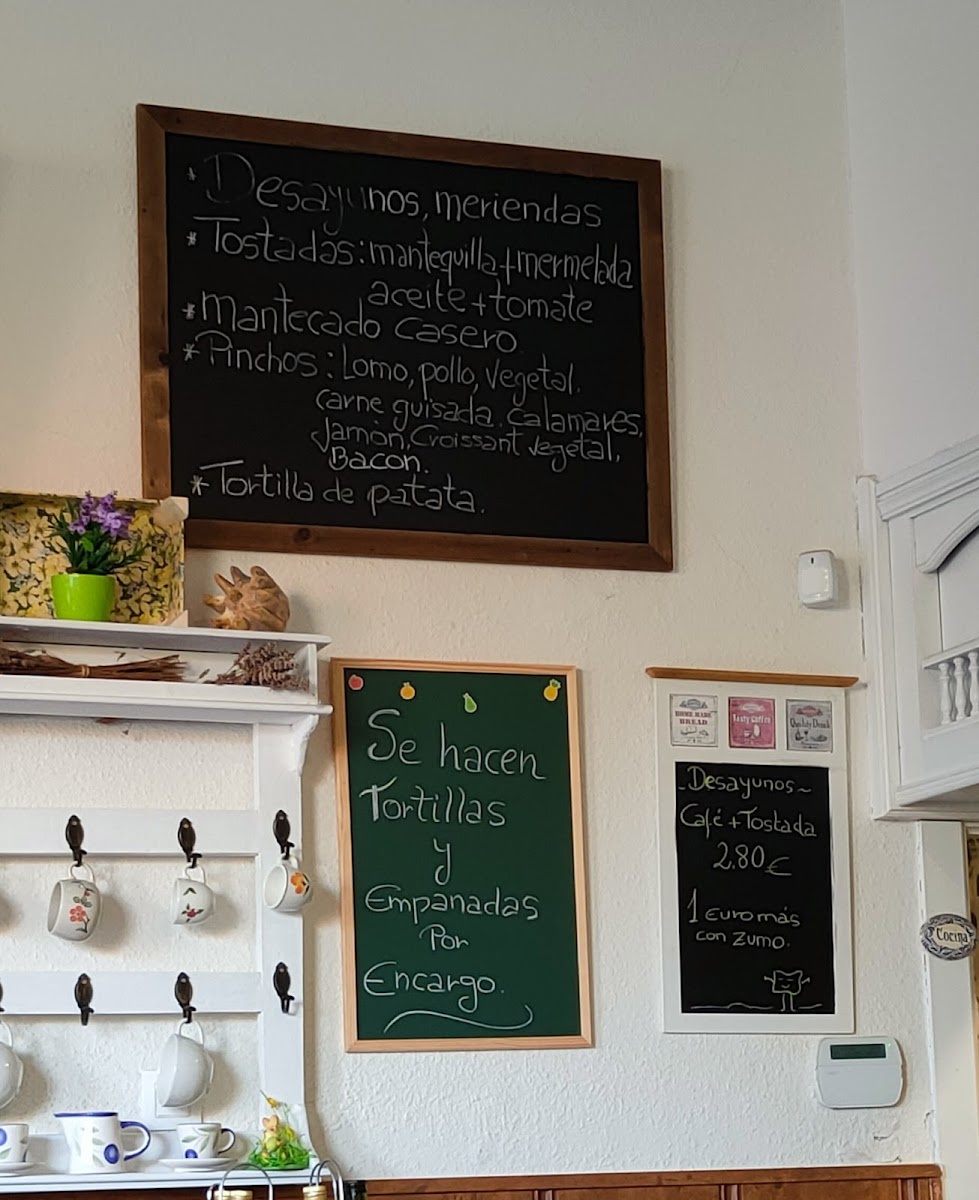 * Desayunos, meriendas
* Tostadas: mantequilla + mermelada
aceite + tomate
* Mantecado Casero
* Pinchos: Lomo, pollo, Vegetal.
carne guisada. Calamares,
Jamòn, Croissant Vegetal,
Bacon.
* Tortilla de patata.
Se hacen
Tortillas
y
Empanadas
Por
Encargo.
HOME MADE
BREAD
Tasty Coffee
Quality Drink
- Desayunos ~
Café + Tostada
2,80 €
1 Euro más
con zumo.
Cocina